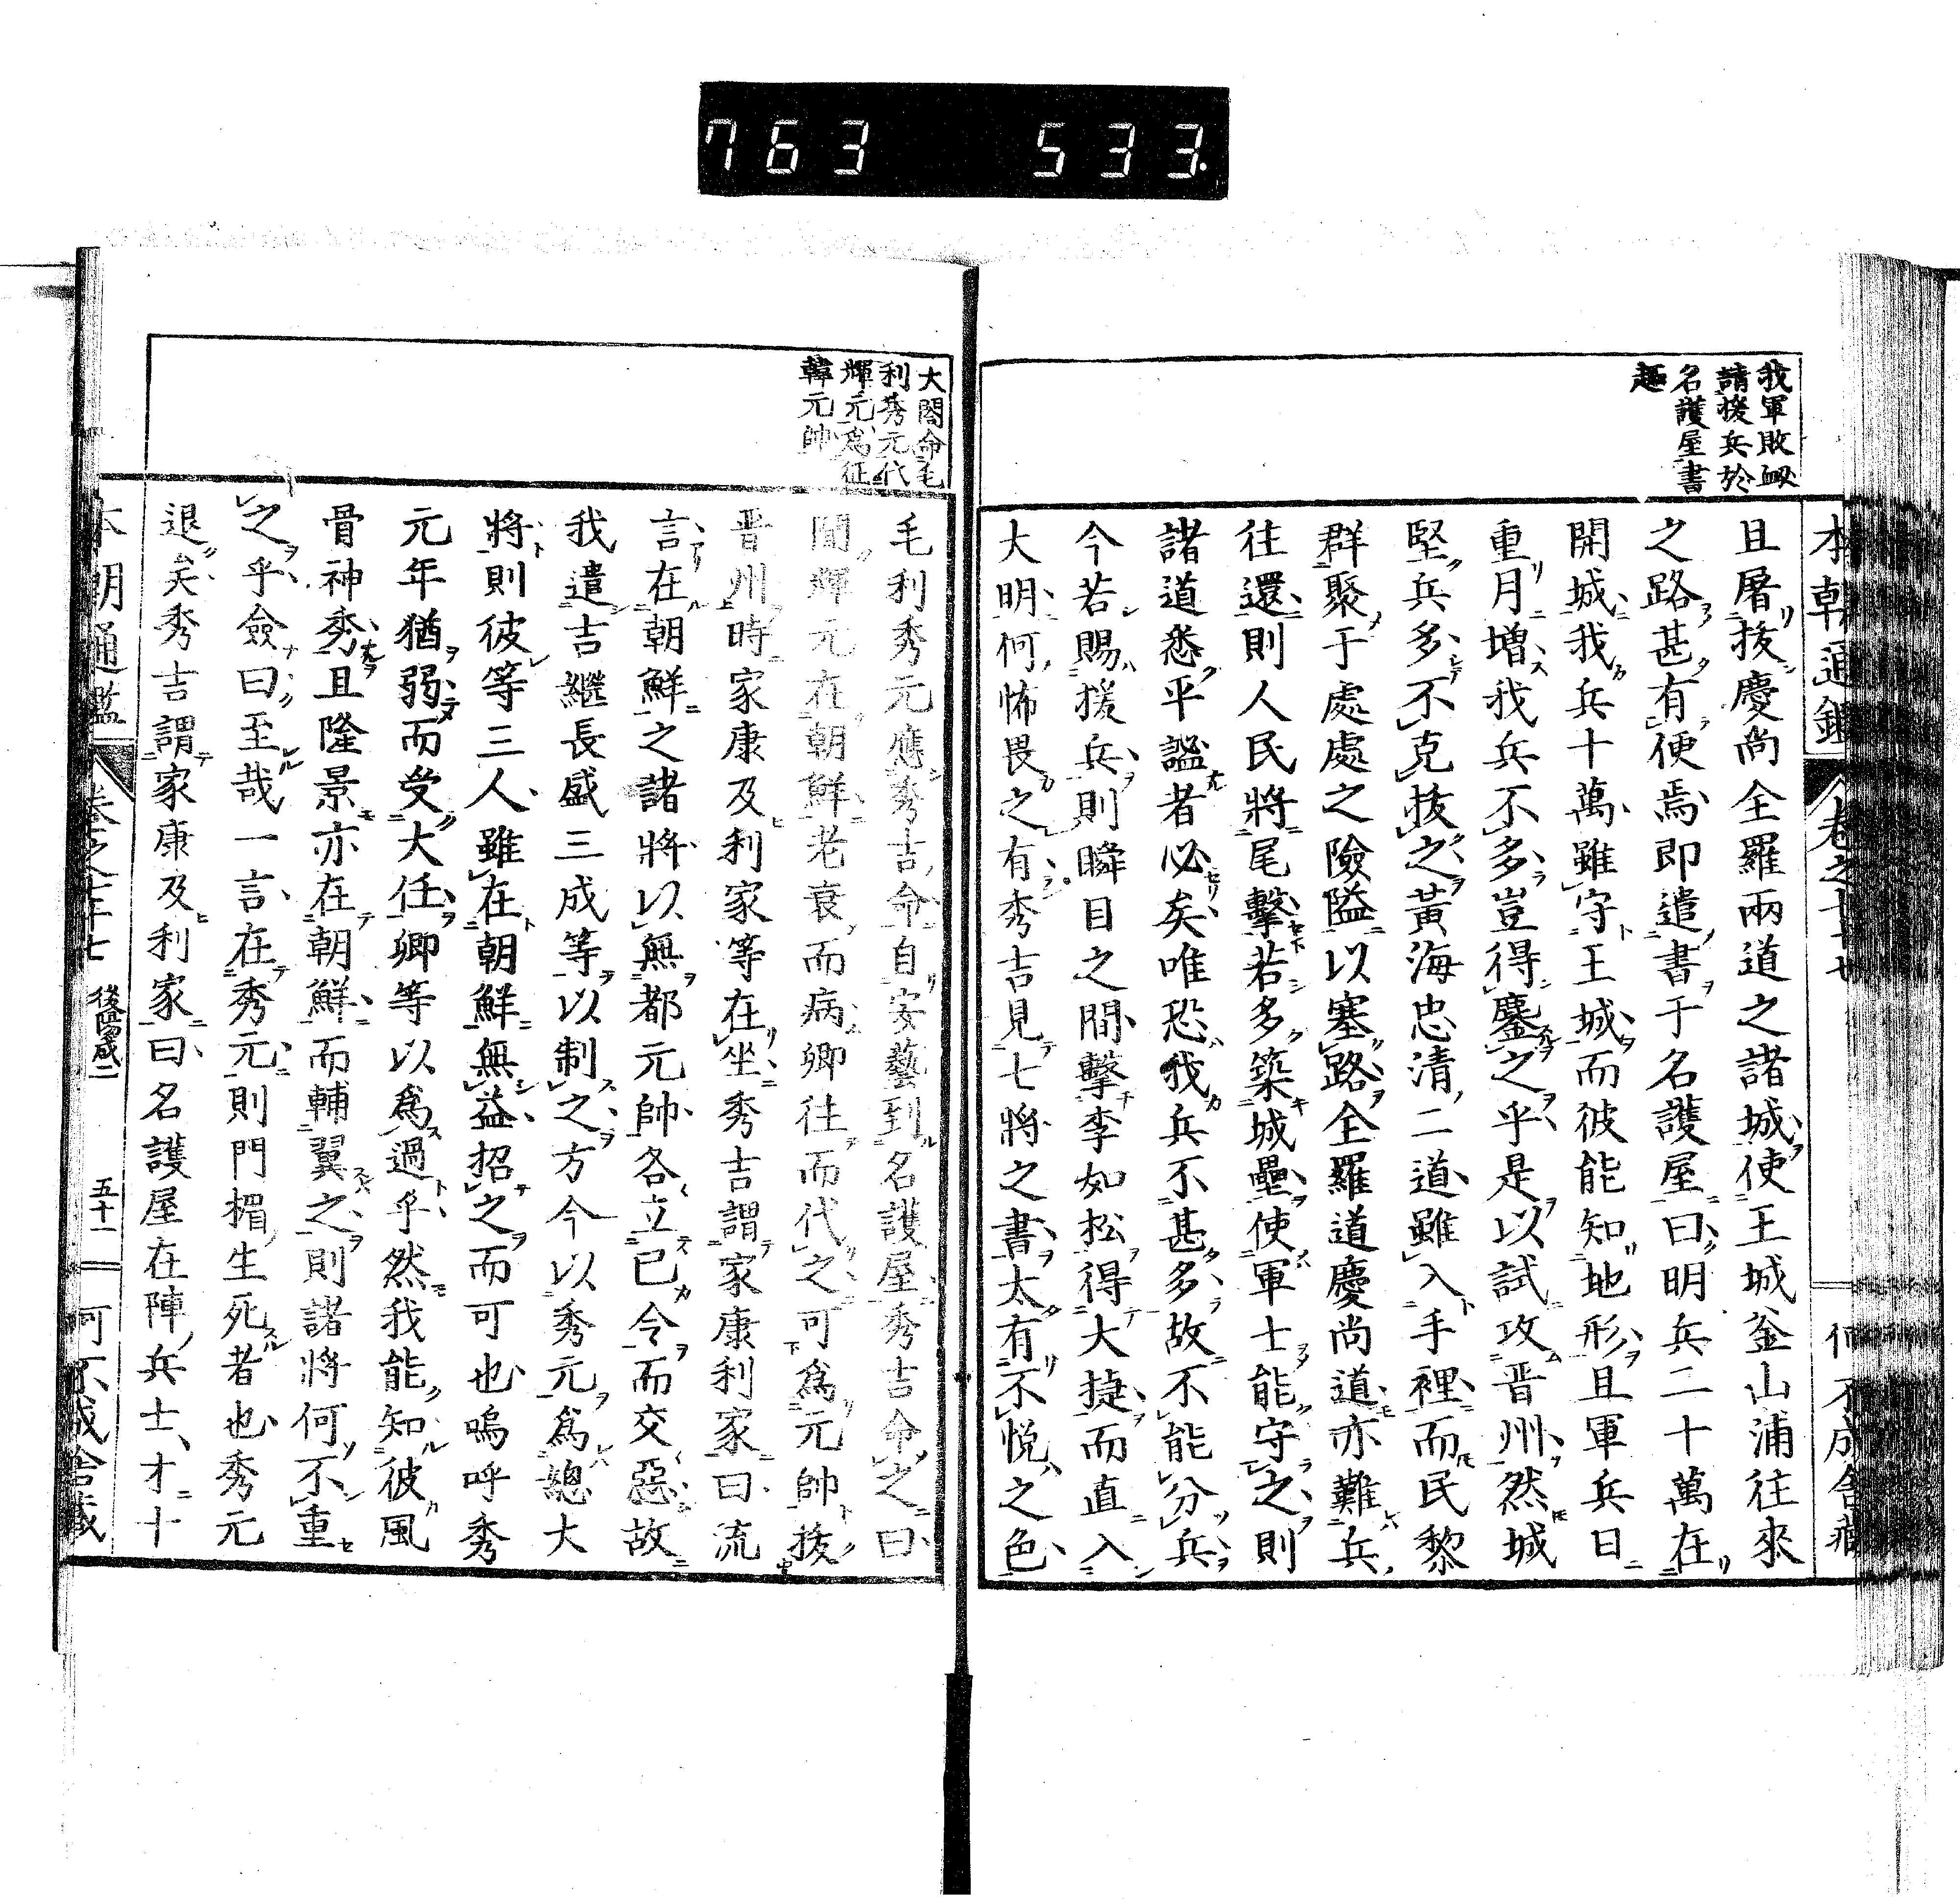 763 533.
我軍敗衂
請援兵於
名護屋書
趣
且屠拔慶尚全羅兩道之諸城使王城釜山浦往來
之路甚有便焉即遣書于名護屋曰明兵二十萬在
開城我兵十萬雖守王城而彼能知地形且軍兵日
重月增我兵不多豈得鏖之乎是以試攻晋州然城
堅兵多不克拔之黃海忠清二道雖入手裡而民黎
群聚于處處之險隘以塞路全羅道慶尚道亦難兵
往還則人民將尾擊若多築城壘使軍士能守之則
諸道悉平謐者必矣唯恐我兵不甚多故不能分兵
今若賜援兵則瞬目之間擊李如松得大捷而直入
大明何怖畏之有秀吉見七將之書太有不悅之色
大閤命毛
利秀元代
輝元爲征
韓元帥
毛利秀元應秀吉命自安藝到名護屋秀吉命之曰
聞輝元在朝鮮老衰而病卿往而代之可爲元帥援
晋州時家康及利家等在坐秀吉謂家康利家曰流
言在朝鮮之諸將以無都元帥各立已令而交惡故
我遣吉繼長盛三成等以制之方今以秀元爲總大
將則彼等三人雖在朝鮮無益招之而可也嗚呼秀
元年猶弱而受大任卿等以爲過乎然我能知彼風
骨神秀且隆景亦在朝鮮而輔翼之則諸將何不重
之乎僉曰至哉一言在秀元則門楣生死者也秀元
退矣秀吉謂家康及利家曰名護屋在陣兵士才十
本朝通鑑 卷之七十七 後陽成二 五十一 何不成舍藏